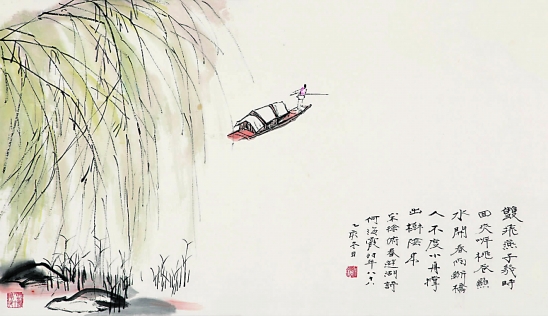 雙飛燕子幾時
回夾岸桃花蘸
水開春雨斷橋
人不度小舟撐
出柳陰來
宋徐府春遊湖詩
何海霞时年八十八
乙亥冬日